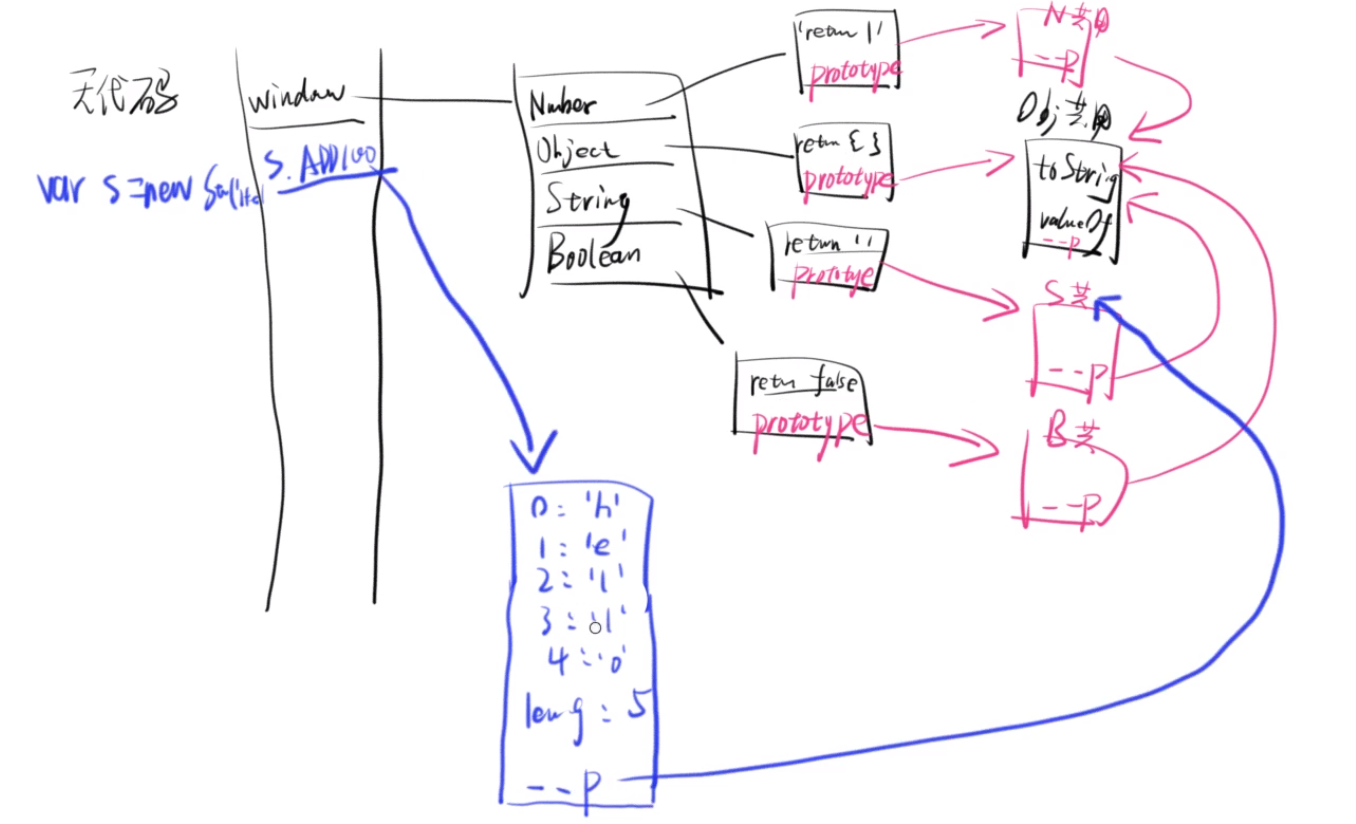 无代码
window
S. ADD100
var s=new
Number
Object
String
Boolean
'return 1'
prototype
return { }
prototype
return ''
prototye
retn false
prototype
N共
--p
Obj共.
toString
valueOf
--p
S共
--p
B共
--p
0: 'h'
1: 'e'
2: 'l'
3: 'l'
4: 'o'
leng: 5
--p